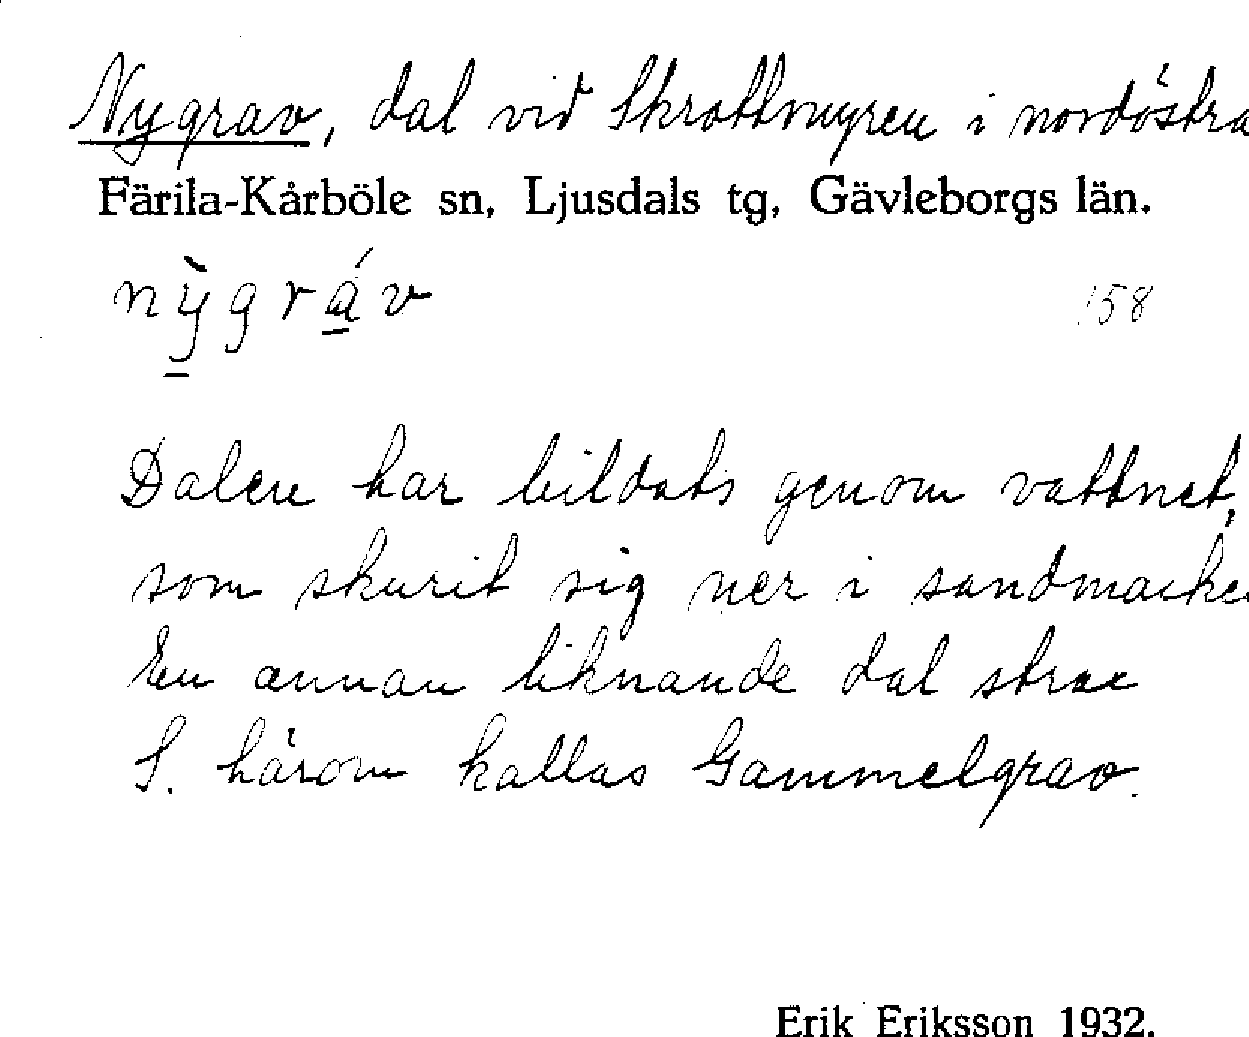 Nygrav, dal vid Skrottmyren i nordöstra
Färila-Kårböle sn, Ljusdals tg, Gävleborgs län.
nỳgráv
158
Dalen har bildats genom vattnet,
som skurit sig ner i sandmarken
En annan liknande dal strax
S. härom kallas Gammelgrav.
Erik Eriksson 1932.